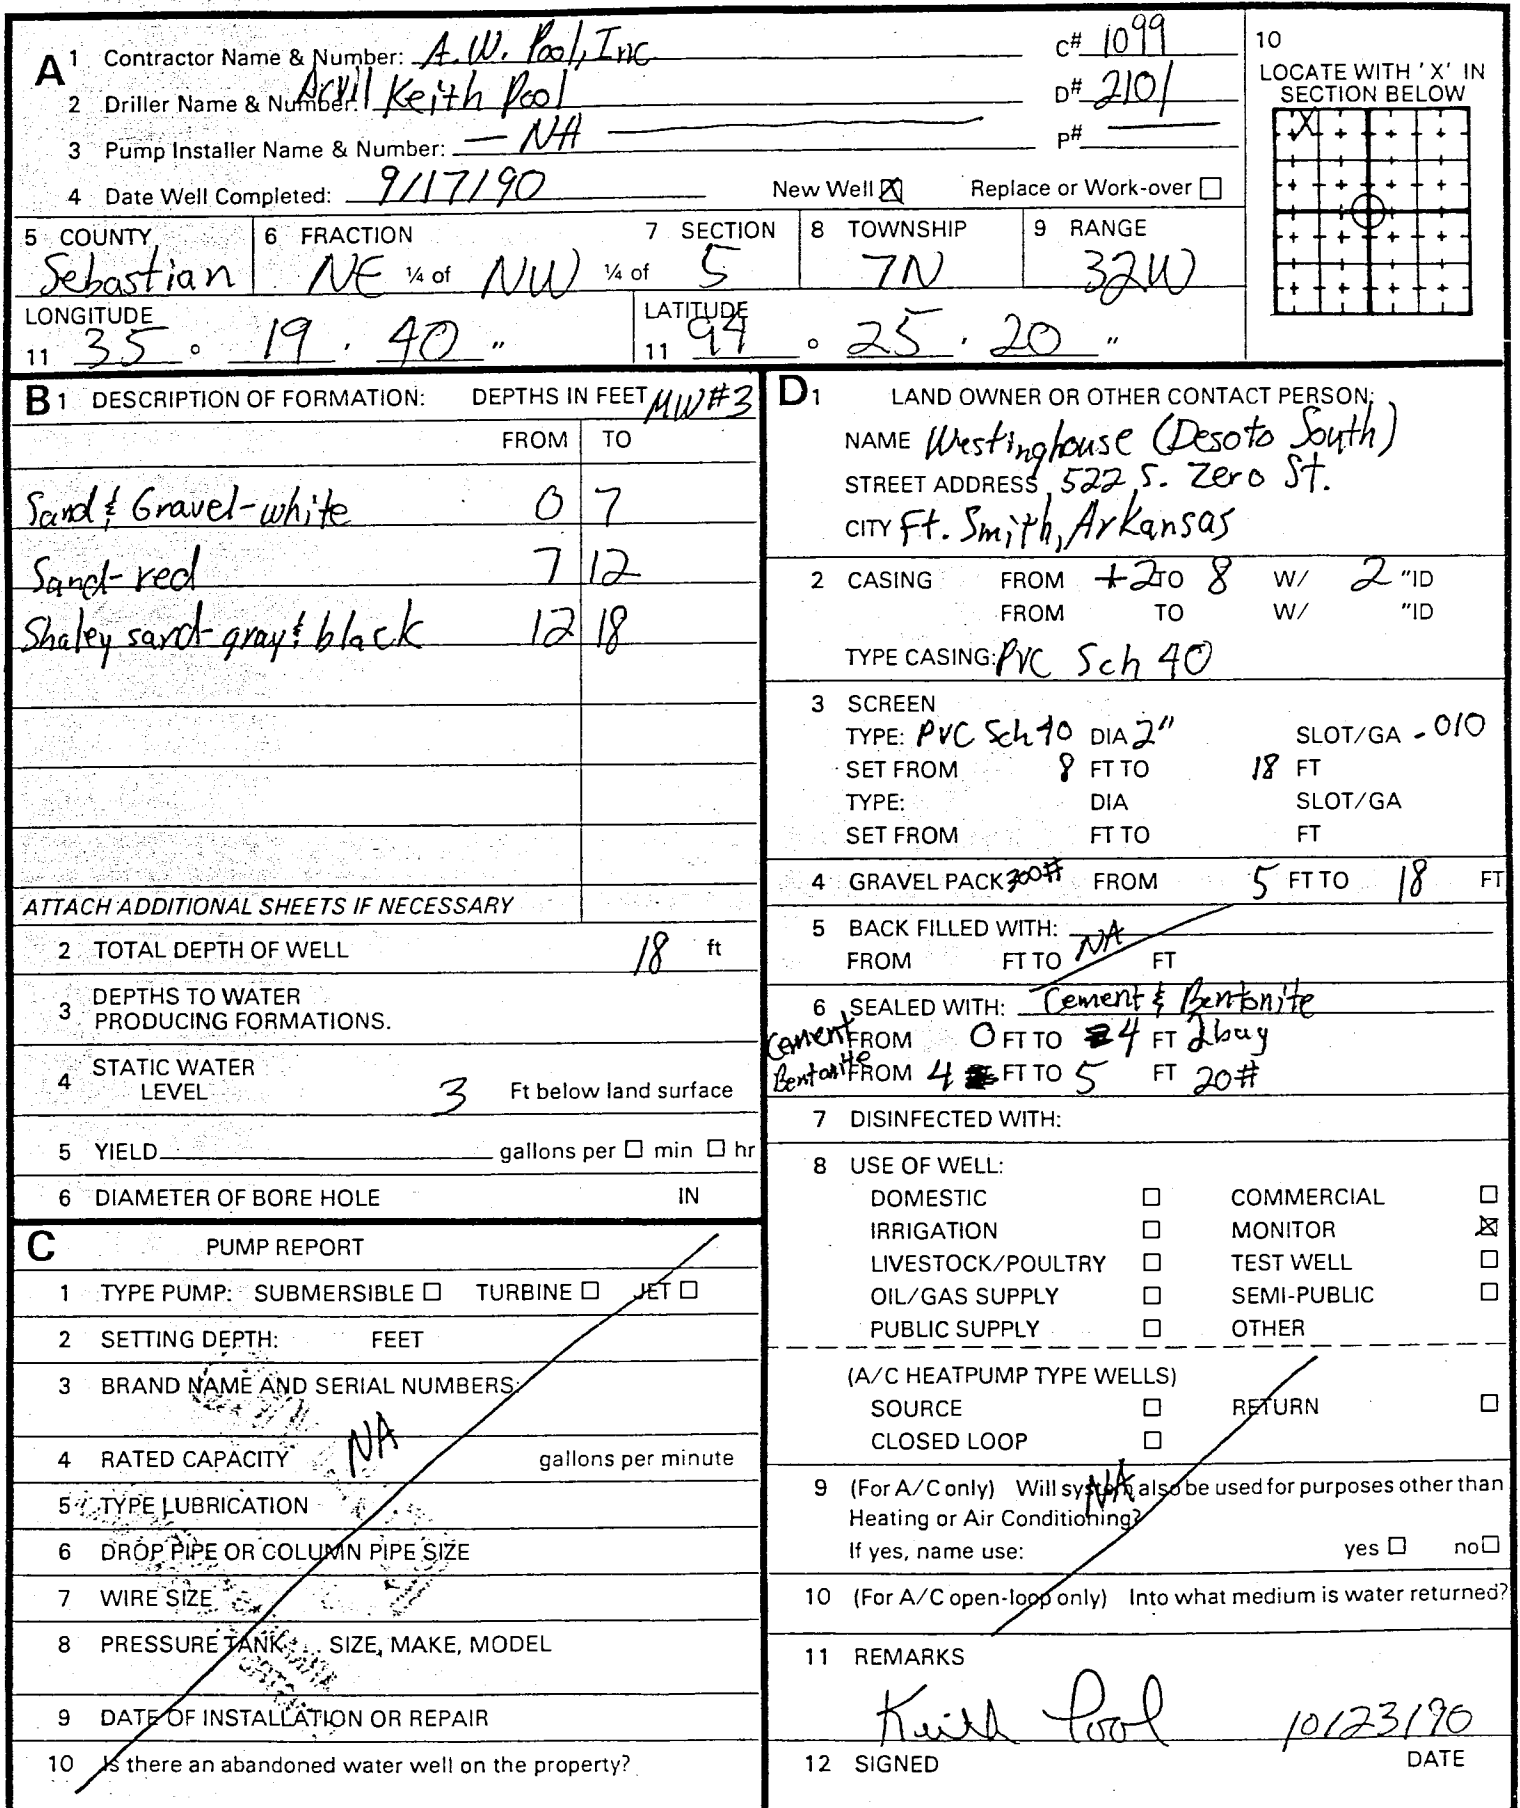 A 1 Contractor Name & Number: A.W. Pool, Inc C# 1099
2 Driller Name & Number: Arvil Keith Pool D# 2101
3 Pump Installer Name & Number: — NA — P# —
4 Date Well Completed: 9/17/90 New Well ☒ Replace or Work-over ☐
10
LOCATE WITH 'X' IN
SECTION BELOW
X
5 COUNTY 6 FRACTION 7 SECTION 8 TOWNSHIP 9 RANGE
Sebastian NE ¼ of NW ¼ of 5 7N 32W
LONGITUDE LATITUDE
11 35 ° 19 ' 40 " 11 94 ° 25 ' 20 "
B 1 DESCRIPTION OF FORMATION: DEPTHS IN FEET MW#3
FROM TO
Sand & Gravel-white 0 7
Sand-red 7 12
Shaley sand-gray & black 12 18
ATTACH ADDITIONAL SHEETS IF NECESSARY
2 TOTAL DEPTH OF WELL 18 ft
3 DEPTHS TO WATER
PRODUCING FORMATIONS.
4 STATIC WATER
LEVEL 3 Ft below land surface
5 YIELD gallons per ☐ min ☐ hr
6 DIAMETER OF BORE HOLE IN
C PUMP REPORT
1 TYPE PUMP: SUBMERSIBLE ☐ TURBINE ☐ JET ☐
2 SETTING DEPTH: FEET
3 BRAND NAME AND SERIAL NUMBERS:
NA
4 RATED CAPACITY gallons per minute
5 TYPE LUBRICATION
6 DROP PIPE OR COLUMN PIPE SIZE
7 WIRE SIZE
8 PRESSURE TANK SIZE, MAKE, MODEL
9 DATE OF INSTALLATION OR REPAIR
10 Is there an abandoned water well on the property?
D 1 LAND OWNER OR OTHER CONTACT PERSON:
NAME Westinghouse (Desoto South)
STREET ADDRESS 522 S. Zero St.
CITY Ft. Smith, Arkansas
2 CASING FROM +2 TO 8 W/ 2 "ID
FROM TO W/ "ID
TYPE CASING: PVC Sch 40
3 SCREEN
TYPE: PVC Sch 40 DIA 2" SLOT/GA .010
SET FROM 8 FT TO 18 FT
TYPE: DIA SLOT/GA
SET FROM FT TO FT
4 GRAVEL PACK 300# FROM 5 FT TO 18 FT
5 BACK FILLED WITH: NA
FROM FT TO FT
6 SEALED WITH: Cement & Bentonite
Cement FROM 0 FT TO 4 FT bag
Bentonite FROM 4 FT TO 5 FT 20#
7 DISINFECTED WITH:
8 USE OF WELL:
DOMESTIC ☐ COMMERCIAL ☐
IRRIGATION ☐ MONITOR ☒
LIVESTOCK/POULTRY ☐ TEST WELL ☐
OIL/GAS SUPPLY ☐ SEMI-PUBLIC ☐
PUBLIC SUPPLY ☐ OTHER
(A/C HEATPUMP TYPE WELLS)
SOURCE ☐ RETURN ☐
CLOSED LOOP ☐
NA
9 (For A/C only) Will system also be used for purposes other than
Heating or Air Conditioning?
If yes, name use: yes ☐ no ☐
10 (For A/C open-loop only) Into what medium is water returned?
11 REMARKS
Keith Pool 10/23/90
12 SIGNED DATE